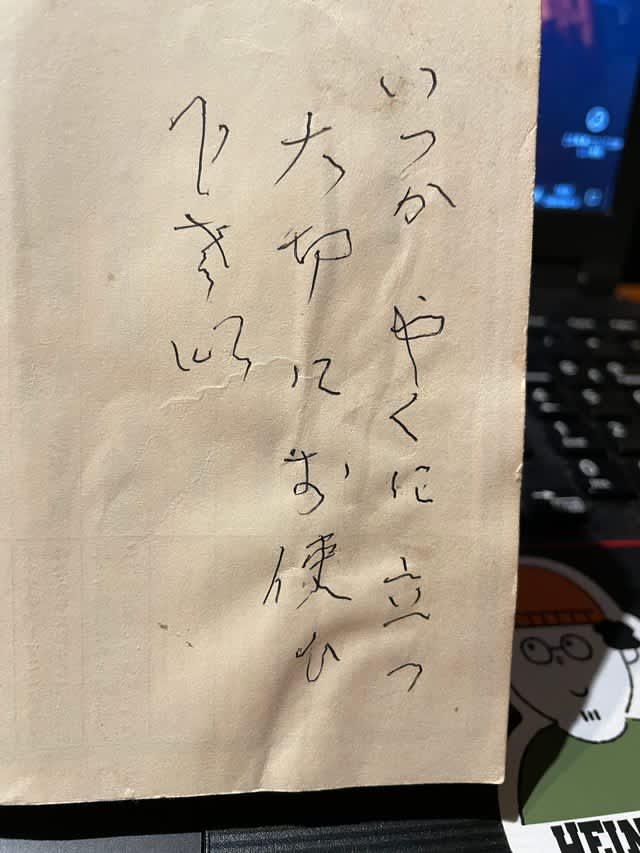 いつか やくに 立つ
大切に お使ひ
下さい
HEIN